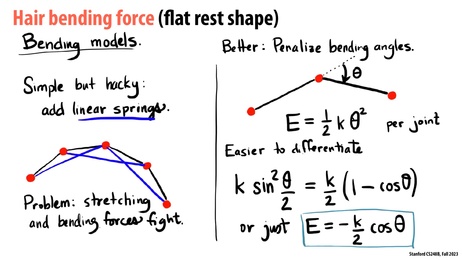 Hair bending force (flat rest shape)
Bending models.
Simple but hacky:
add linear springs.
Problem: stretching
and bending forces fight.
Better: Penalize bending angles.
θ
E = ½ k θ² per joint
Easier to differentiate
k sin² θ/2 = k/2 (1 - cosθ)
or just E = -k/2 cosθ
Stanford CS248B, Fall 2023